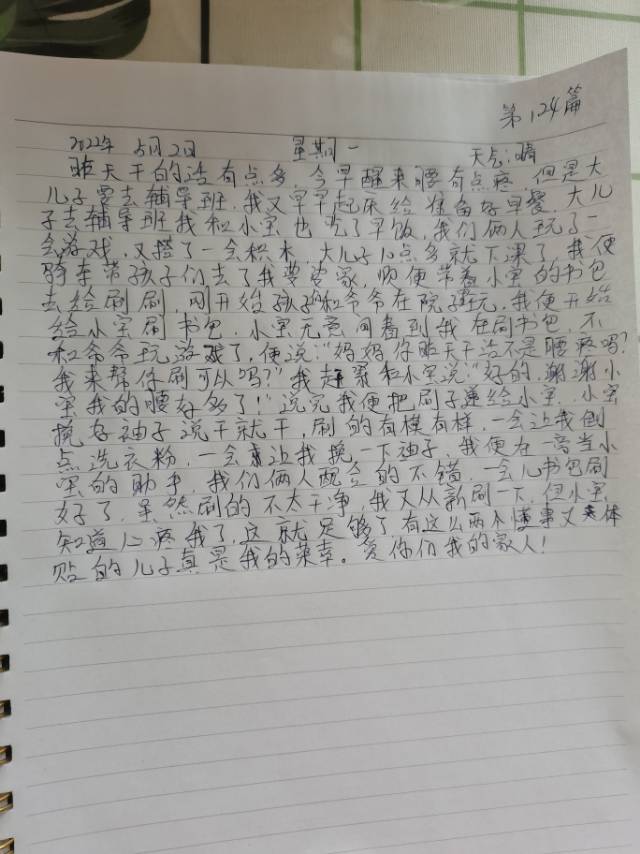 第124篇
2022年 5月2日 星期一 天气:晴
昨天干的活有点多,今早醒来腰有点疼,但是大
儿子要去辅导班,我又早早起床给准备好早餐,大儿
子去辅导班我和小宝也吃了早饭,我们俩人玩了一
会游戏,又搭了一会积木,大儿子10点多就下课了,我便
骑车带孩子们去了我婆婆家,顺便带着小宝的书包
去给刷刷,刚开始孩子和爷爷在院子玩,我便开始
给小宝刷书包,小宝无意间看到我在刷书包,不
和爷爷玩游戏了,便说:“妈妈你昨天干活不是腰疼吗?
我来帮你刷可以吗?”我赶紧和小宝说:“好的,谢谢小
宝我的腰好多了!”说完我便把刷子递给小宝,小宝
挽好袖子说干就干,刷的有模有样,一会让我倒
点洗衣粉,一会让我挽一下袖子,我便在一旁当小
宝的助手,我们俩人配合的不错,一会儿书包刷
好了,虽然刷的不太干净,我又从新刷一下,但小宝
知道心疼我了,这就足够了有这么两个懂事又体
贴的儿子真是我的荣幸。爱你们我的家人!